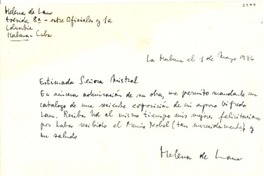 Helena de Lam
Avenida 8a - entre Oficiales y 1a
Columbia
Habana - Cuba
La Habana el 1 de Mayo 1946
Estimada Señora Mistral
En sincera admiración de su obra, me permito mandarle un
catálogo de una reciente exposición de mi esposo Wifredo
Lam. Reciba Ud al mismo tiempo mis mejores felicitaciones
por haber recibido el Premio Nobel (tan merecidamente) y
mi saludo
Helena de Lam